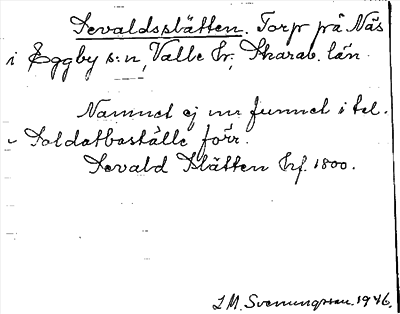 Sevaldsslätten. Torp på Näs
i Eggby s:n, Valle hr; Skarab. län.
Namnet ej nu funnet i tel.
- Soldatboställe förr.
Sevald Slätten hf. 1800.
S.M. Svenungsson. 1946.